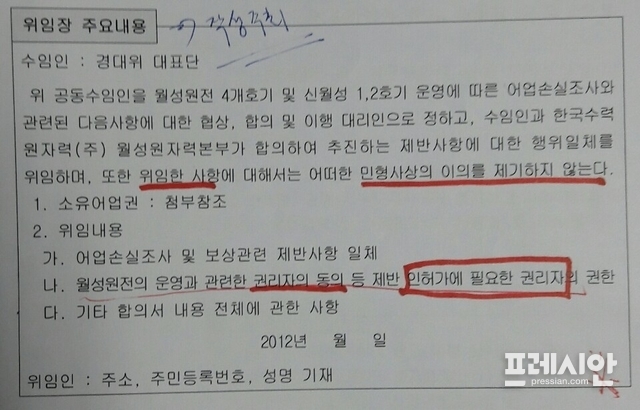 위임장 주요내용
수임인 : 경대위 대표단
위 공동수임인을 월성원전 4개호기 및 신월성 1,2호기 운영에 따른 어업손실조사와
관련된 다음사항에 대한 협상, 합의 및 이행 대리인으로 정하고, 수임인과 한국수력
원자력(주) 월성원자력본부가 합의하여 추진하는 제반사항에 대한 행위일체를
위임하며, 또한 위임한 사항에 대해서는 어떠한 민형사상의 이의를 제기하지 않는다.
1. 소유어업권 : 첨부참조
2. 위임내용
가. 어업손실조사 및 보상관련 제반사항 일체
나. 월성원전의 운영과 관련한 권리자의 동의 등 제반 인허가에 필요한 권리자의 권한
다. 기타 합의서 내용 전체에 관한 사항
2012년 월 일
위임인 : 주소, 주민등록번호, 성명 기재
프레시안
pressian.com